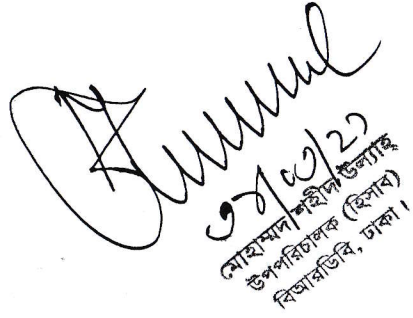 মোহাম্মদ শহীদ উল্যাহ্
উপপরিচালক (হিসাব)
বিআরডিবি, ঢাকা।